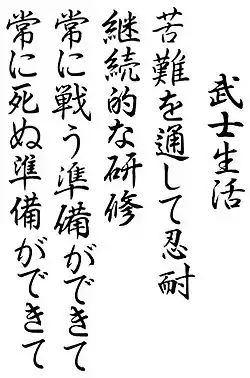 武士生活
苦難を通して忍耐
継続的な研修
常に戦う準備ができて
常に死ぬ準備ができて